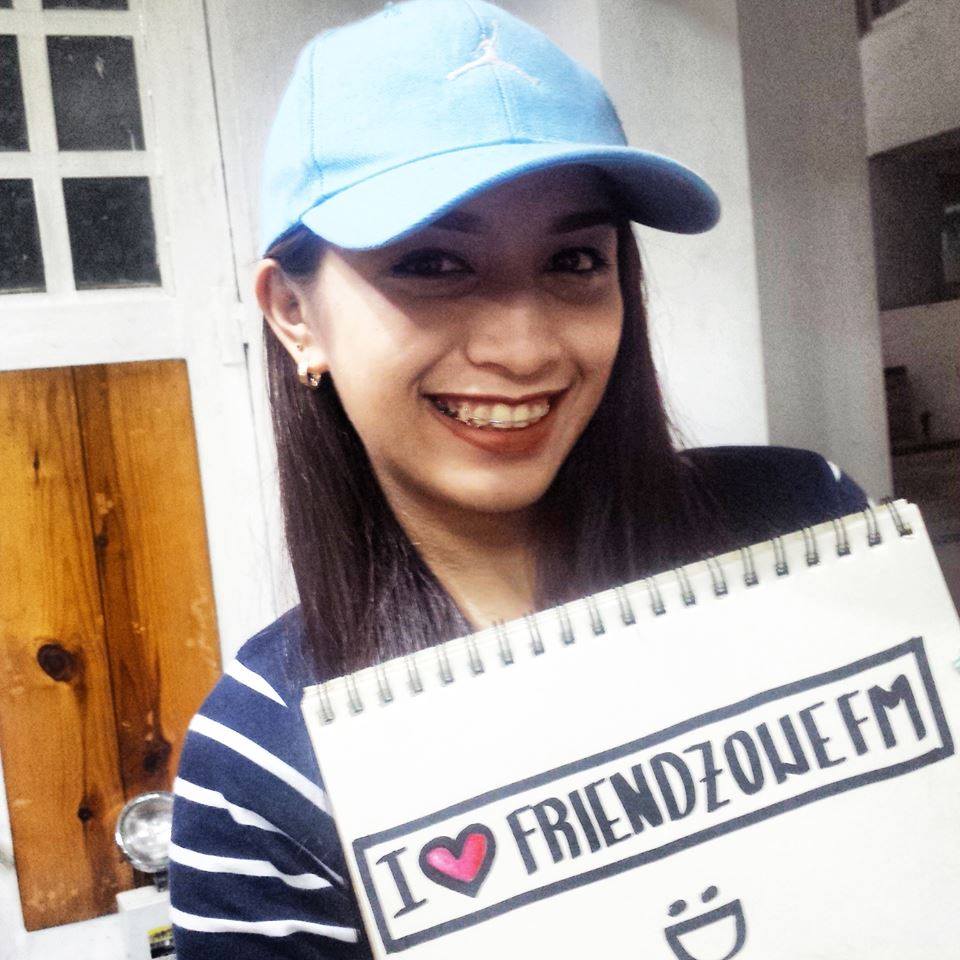 I ❤ FRIENDZONE FM